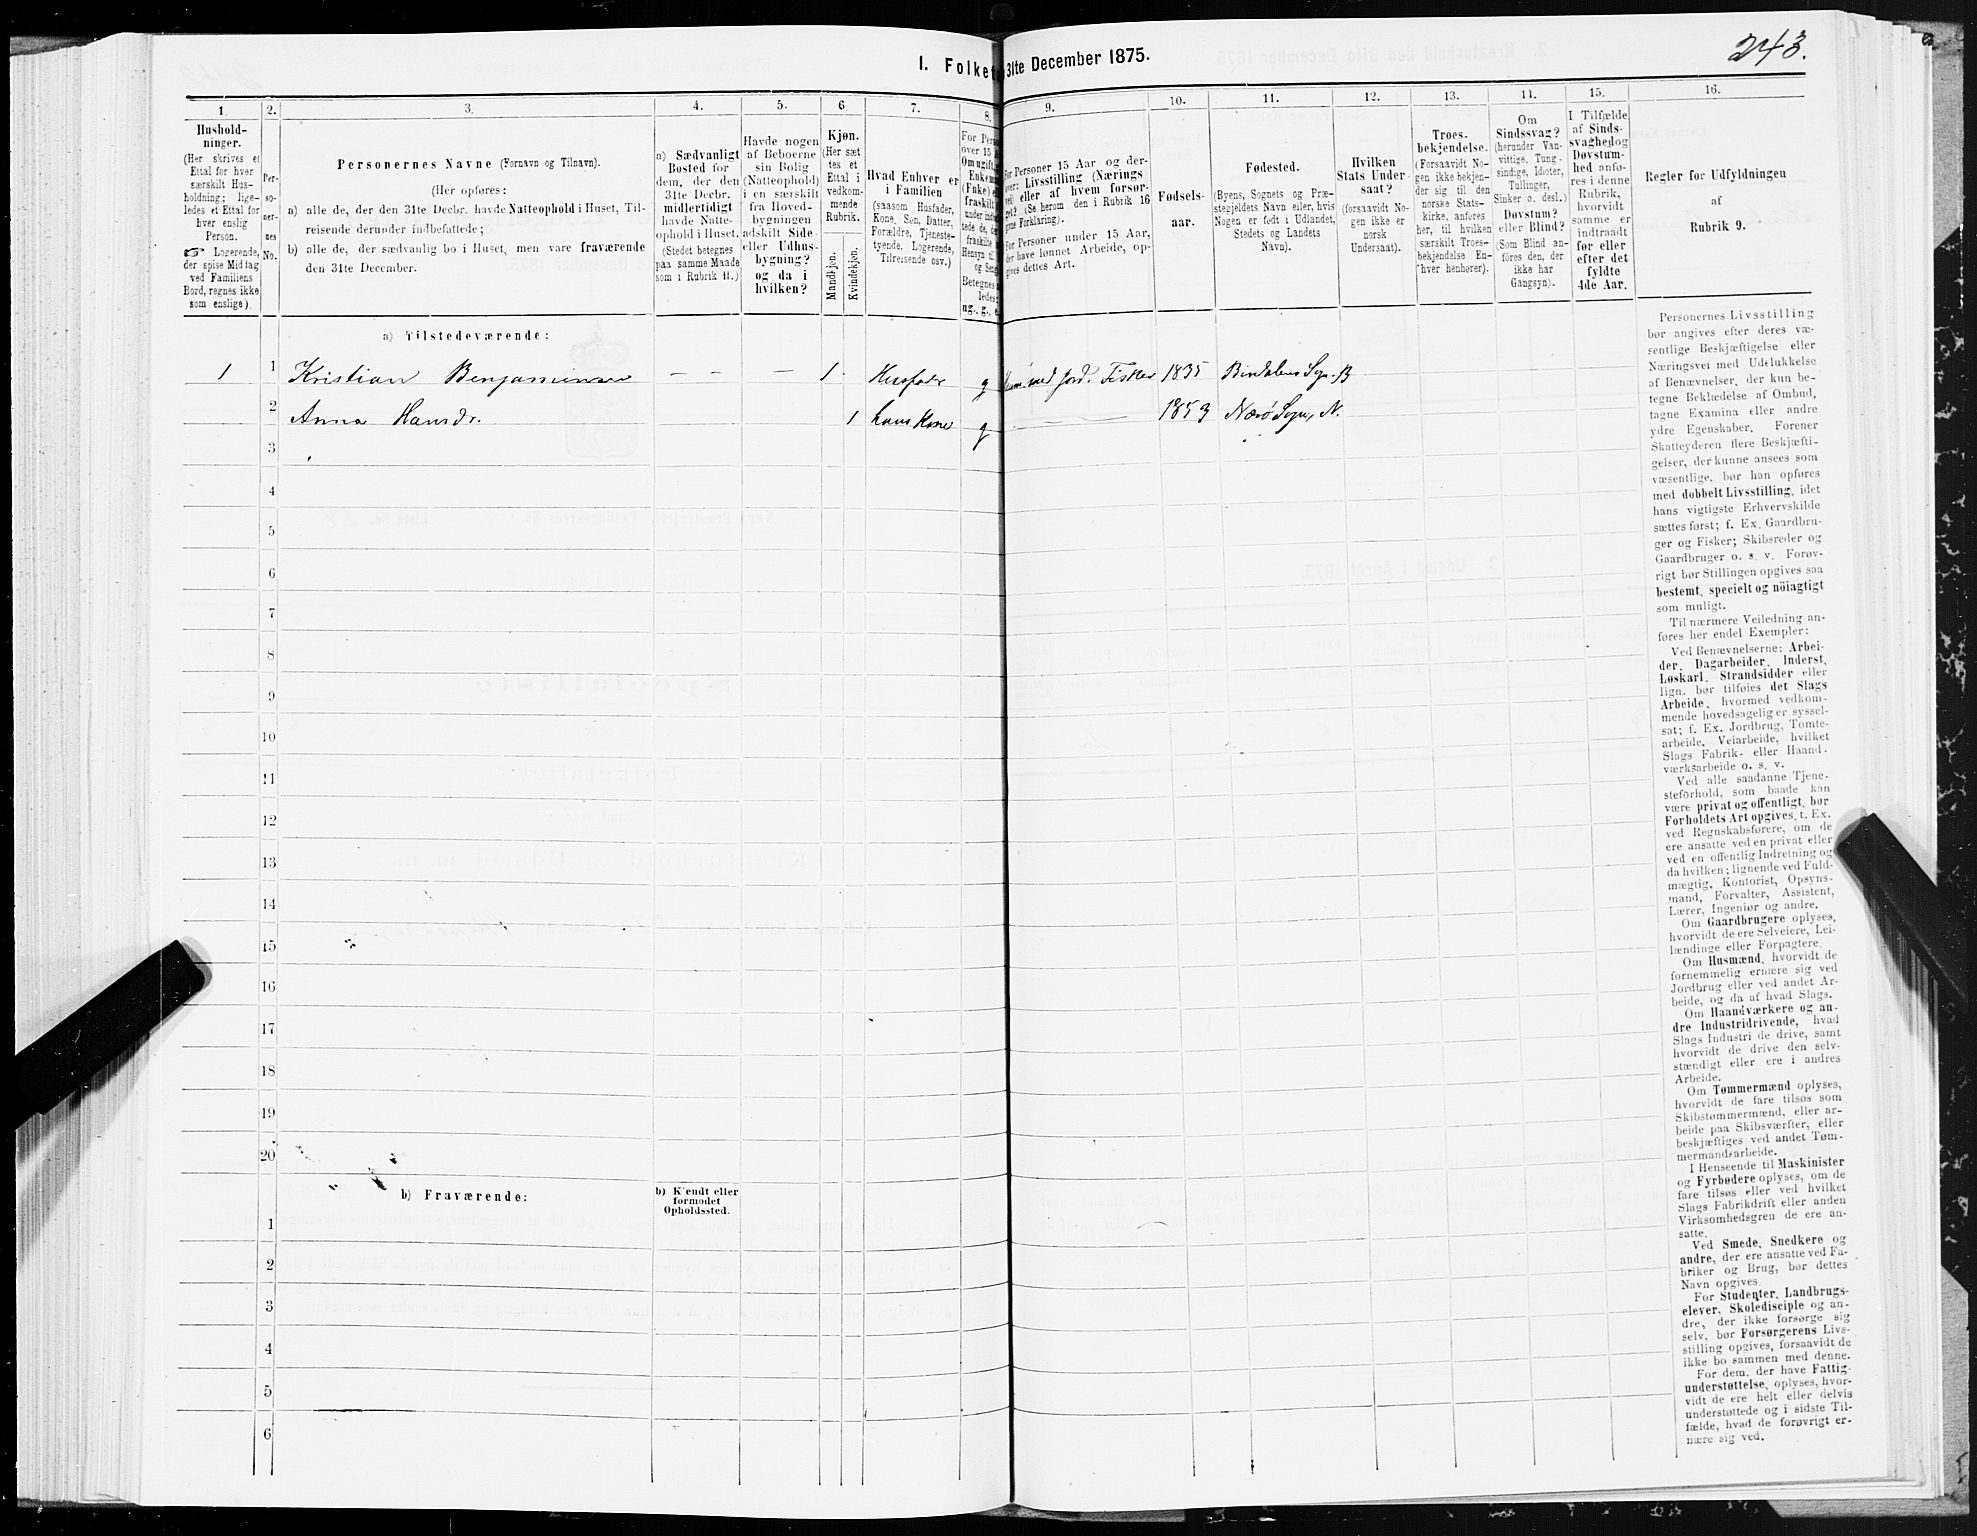 I. Folket 31te December 1875.
243.
1. 2. 3. 4. 5. 6. 7. 8. 9. 10. 11. 12. 13. 14. 15. 16.
Hushold-
ninger.
(Her skrives et
Ettal for hver
særskilt Hus-
holdning; lige-
ledes et Ettal for
hver enslig
Person.
☞ Logerende,
der spise Middag
ved Familiens
Bord, regnes ikke
som enslige).
Per-
so-
ner-
nes
No.
Personernes Navne (Fornavn og Tilnavn).
(Her opføres:
a) alle de, der den 31te Decbr. havde Natteophold i Huset, Til-
reisende derunder indbefattede;
b) alle de, der sædvanlig bo i Huset, men vare fraværende
den 31te December.
a) Sædvanligt
Bosted for
dem, der den
31te Decbr.
midlertidigt
havde Natte-
ophold i Huset.
(Stedet betegnes
paa samme Maade
som i Rubrik 11.)
Havde nogen
af Beboerne
sin Bolig
(Natteophold)
i en særskilt
fra Hoved-
bygningen
adskilt Side-
eller Udhus-
bygning?
og da i
hvilken?
Kjøn.
(Her sæt
tes et
Ettal i
vedkom-
mende
Rubrik.
Mandkjøn.
Kvindekjøn.
Hvad Enhver er
i Familien
(saasom Husfader,
Kone, Søn, Datter,
Forældre, Tjeneste-
tyende, Logerende,
Tilreisende osv.)
For Pers
over 15 A
Om ugift,
Enkem
(Enke) e
fraskilt
under indbe
tede de, de
fraskilte
Hensyn til
og Seng
Betegnes
ledes:
ug., g., e
For Personer 15 Aar og der-
over: Livsstilling (Nærings
vei) eller af hvem forsør-
get? (Se herom den i Rubrik 16
givne Forklaring).
For Personer under 15 Aar,
der have lønnet Arbeide, op-
gives dettes Art.
Fødsels-
aar.
Fødested.
(Byens, Sognets og Præ-
stegjeldets Navn eller, hvis
Nogen er født i Udlandet,
Stedets og Landets
Navn).
Hvilken
Stats Under-
saat?
(forsaavidt No-
gen ikke er
norsk
Undersaat).
Troes-
bekjendelse.
(Forsaavidt No-
gen ikke bekjen-
der sig til den
norske Stats-
kirke, anføres
her, til hvilken
særskilt Troes-
bekjendelse En-
hver henhører).
Om
Sindssvag?
(herunder Van-
vittige, Tung-
sindige, Idioter,
Tullinger,
Sinker o. desl.)
Døvstum?
eller Blind?
(Som Blind an-
føres den, der
ikke har
Gangsyn).
I Tilfælde
af Sinds-
svaghed og
Døvstum-
hed anfø-
res i denne
Rubrik,
hvorvidt
samme er
indtraadt
før eller
efter det
fyldte
4de Aar.
Regler for Udfyldningen
af
Rubrik 9.
a) Tilstedeværende:
1 1 Kristian Benjaminsen – – – 1. g med Jord. Fisker 1835 Bindalens Sogn. B
2 Anna Hansdr. 1 hans Kone g 1853 Nærø Sogn, N.
3
4
5
6
7
8
9
10
11
12
13
14
15
16
17
18
19
20
b) Fraværende:
b) Kjendt eller
formodet
Opholdssted.
1
2
3
4
5
6
Personernes Livsstilling
bør angives efter deres væ-
sentlige Beskjæftigelse eller
Næringsvei med Udelukkelse
af Benævnelser, der kun be-
tegne Beklædelse af Ombud,
tagne Examina eller andre
ydre Egenskaber. Forener
Skatteyderen flere Beskjæfti-
gelser, der kunne ansees som
væsentlige, bør han opføres
med dobbelt Livsstilling, idet
hans vigtigste Erhvervskilde
sættes først; f. Ex. Gaardbru-
ger og Fisker; Skibsreder og
Gaardbruger o. s. v. Forøv-
rigt bør Stillingen opgives saa
bestemt, specielt og nöiagtigt
som muligt.
Til nærmere Veiledning an-
føres her endel Exempler:
Ved Benævnelserne: Arbei-
der, Dagarbeider, Inderst,
Løskarl, Strandsidder eller
lign. bør tilføies det Slags
Arbeide, hvormed vedkom-
mende hovedsagelig er syssel-
sat; f. Ex. Jordbrug, Tomte-
arbeide, Veiarbeide, hvilket
Slags Fabrik- eller Haand-
værksarbeide o. s. v.
Ved alle saadanne Tjene-
steforhold, som baade kan
være privat og offentligt, bør
Forholdets Art opgives, t. Ex.
ved Regnskabsførere, om de
ere ansatte ved en privat eller
ved en offentlig Indretning og
da hvilken; lignende ved Fuld-
mægtig, Kontorist, Opsyns-
mand, Forvalter, Assistent,
Lærer, Ingeniør og andre.
Om Gaardbrugere oplyses,
hvorvidt de ere Selveiere, Lei-
lændinge eller Forpagtere.
Om Husmænd, hvorvidt de
fornemmelig ernære sig ved
Jordbrug eller ved andet Ar-
beide, og da af hvad Slags.
Om Haandværkere og an-
dre Industridrivende, hvad
Slags Industri de drive, samt
hvorvidt de drive den selv-
stændigt eller ere i andres
Arbeide.
Om Tømmermænd oplyses,
hvorvidt de fare tilsøs som
Skibstømmermænd, eller ar-
beide paa Skibsværfter, eller
beskjæftiges ved andet Tøm-
mermandsarbeide.
I Henseende til Maskinister
og Fyrbødere oplyses, om de
fare tilsøs eller ved hvilket
Slags Fabrikdrift eller anden
Virksomhedsgren de ere an-
satte.
Ved Smede, Snedkere og
andre, der ere ansatte ved Fa-
briker og Brug, bør dettes
Navn opgives.
For Studenter, Landbrugs-
elever, Skoledisciple og an-
dre, der ikke forsørge sig
selv, bør Forsørgerens Livs-
stilling opgives, forsaavidt de
ikke bo sammen med denne.
For dem, der have Fattig-
understøttelse, oplyses, hvor-
vidt de ere helt eller delvis
understøttede og i sidste Til-
fælde, hvad de forøvrigt er-
nære sig ved.